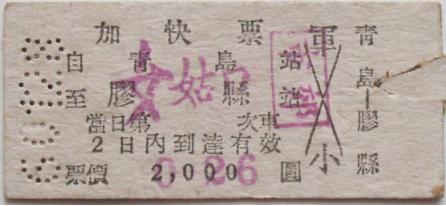 加快票
自青島站
至膠縣站
女姑口
當日第 次車
2日內到達有效
票價 2,000 圓
6 26
軍
小
青島—膠縣